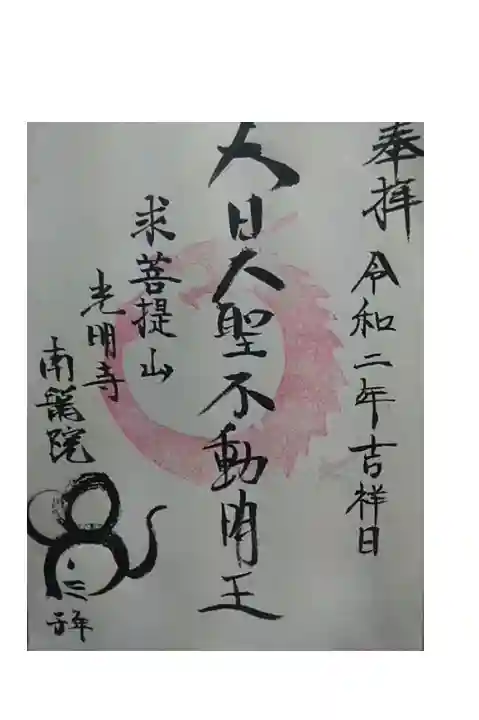 奉拝
令和二年吉祥日
大日大聖不動明王
求菩提山
光明寺
南籠院
子年